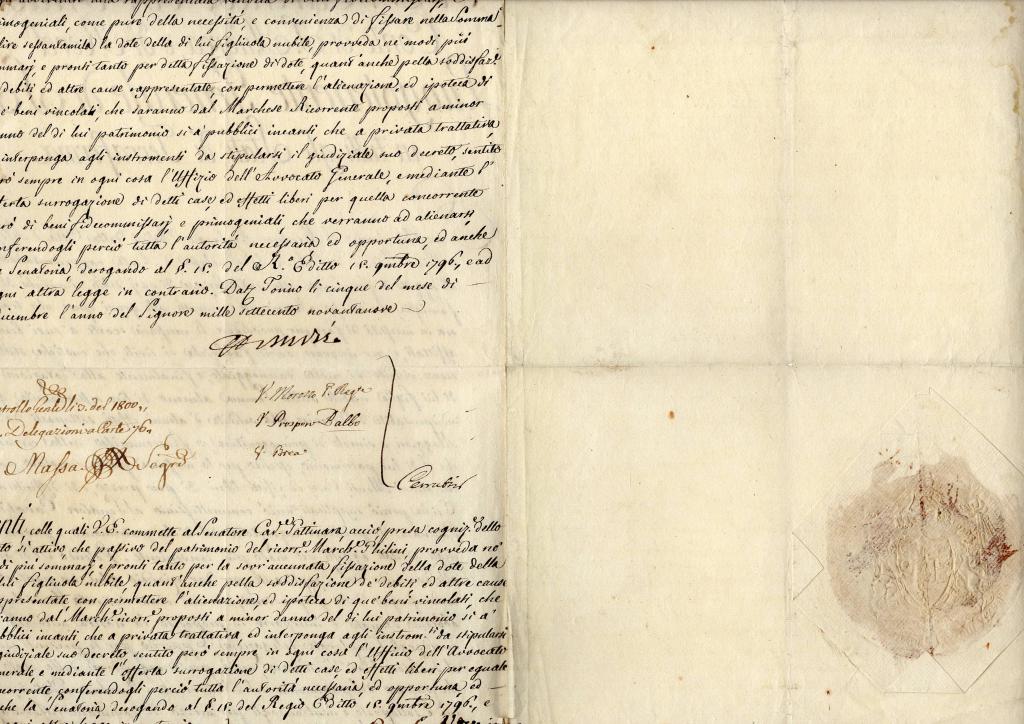 imogeniali, come pure della necessità, e convenienza di fissare nella Somma
lire sessantamila la dote della di lui figliuola nubile, provveda ne' modi più
mmarj, e pronti tanto per detta fissazione di dote, quant' anche pella soddisfaz.
debiti, ed altre cause rappresentate, con permettere l'alienazione, ed ipoteca di
e' beni vincolati, che saranno dal Marchese Ricorrente proposti a minor
nno del di lui patrimonio si a' pubblici incanti che a privata trattativa,
interponga agli instromenti da stipularsi il giudiziale suo decreto, sentito
rò sempre in ogni cosa l'Uffizio dell'Avvocato Generale, e mediante l'
ferta surrogazione di detti case, ed effetti liberi per quella concorrente
rò di beni fidecommissarj, e primogeniali, che verranno ad alienarsi
nferendogli perciò tutta l'autorità necessaria ed opportuna, ed anche
Senatoria, derogando al §. 15. del R.º Editto 15. qmbre 1796., e ad
gni altra legge in contrario. Dat. Torino li cinque del mese di
dicembre l'anno del Signore mille settecento novantanove
V. Morozzo P. Reg.te
V. Prospero Balbo
Cerrutini
li 3. del 1800.,
Delegazioni a Parte 76.
Massa Segr.
enti, colle quali V. E. commette al Senatore Cav. Pattinara, acciò presa cogniz. dello
to sì attivo, che passivo del patrimonio del ricorr. March. Philini, provveda ne'
di più sommarj, e pronti tanto per la sovr'accennata fissazione della dote della
lui figliuola nubile, quant'anche pella soddisfazione de' debiti ed altre cause
ppresentate con permettere l'alienazione, ed ipoteca di que' beni vincolati, che
ranno dal March. ricorr. proposti a minor danno del di lui patrimonio sì a'
bblici incanti, che a privata trattativa, ed interponga agli instrom.ti da stipularsi
giudiziale suo decreto sentito però sempre in ogni cosa l'Ufficio dell'Avvocato
nerale, e mediante l'offerta surrogazione di detti case, ed effetti liberi per eguale
ncorrente, conferendogli perciò tutta l'autorità necessaria, ed opportuna ed
che la Senatoria derogando al §. 15. del Regio Editto 15. qmbre 1796., e